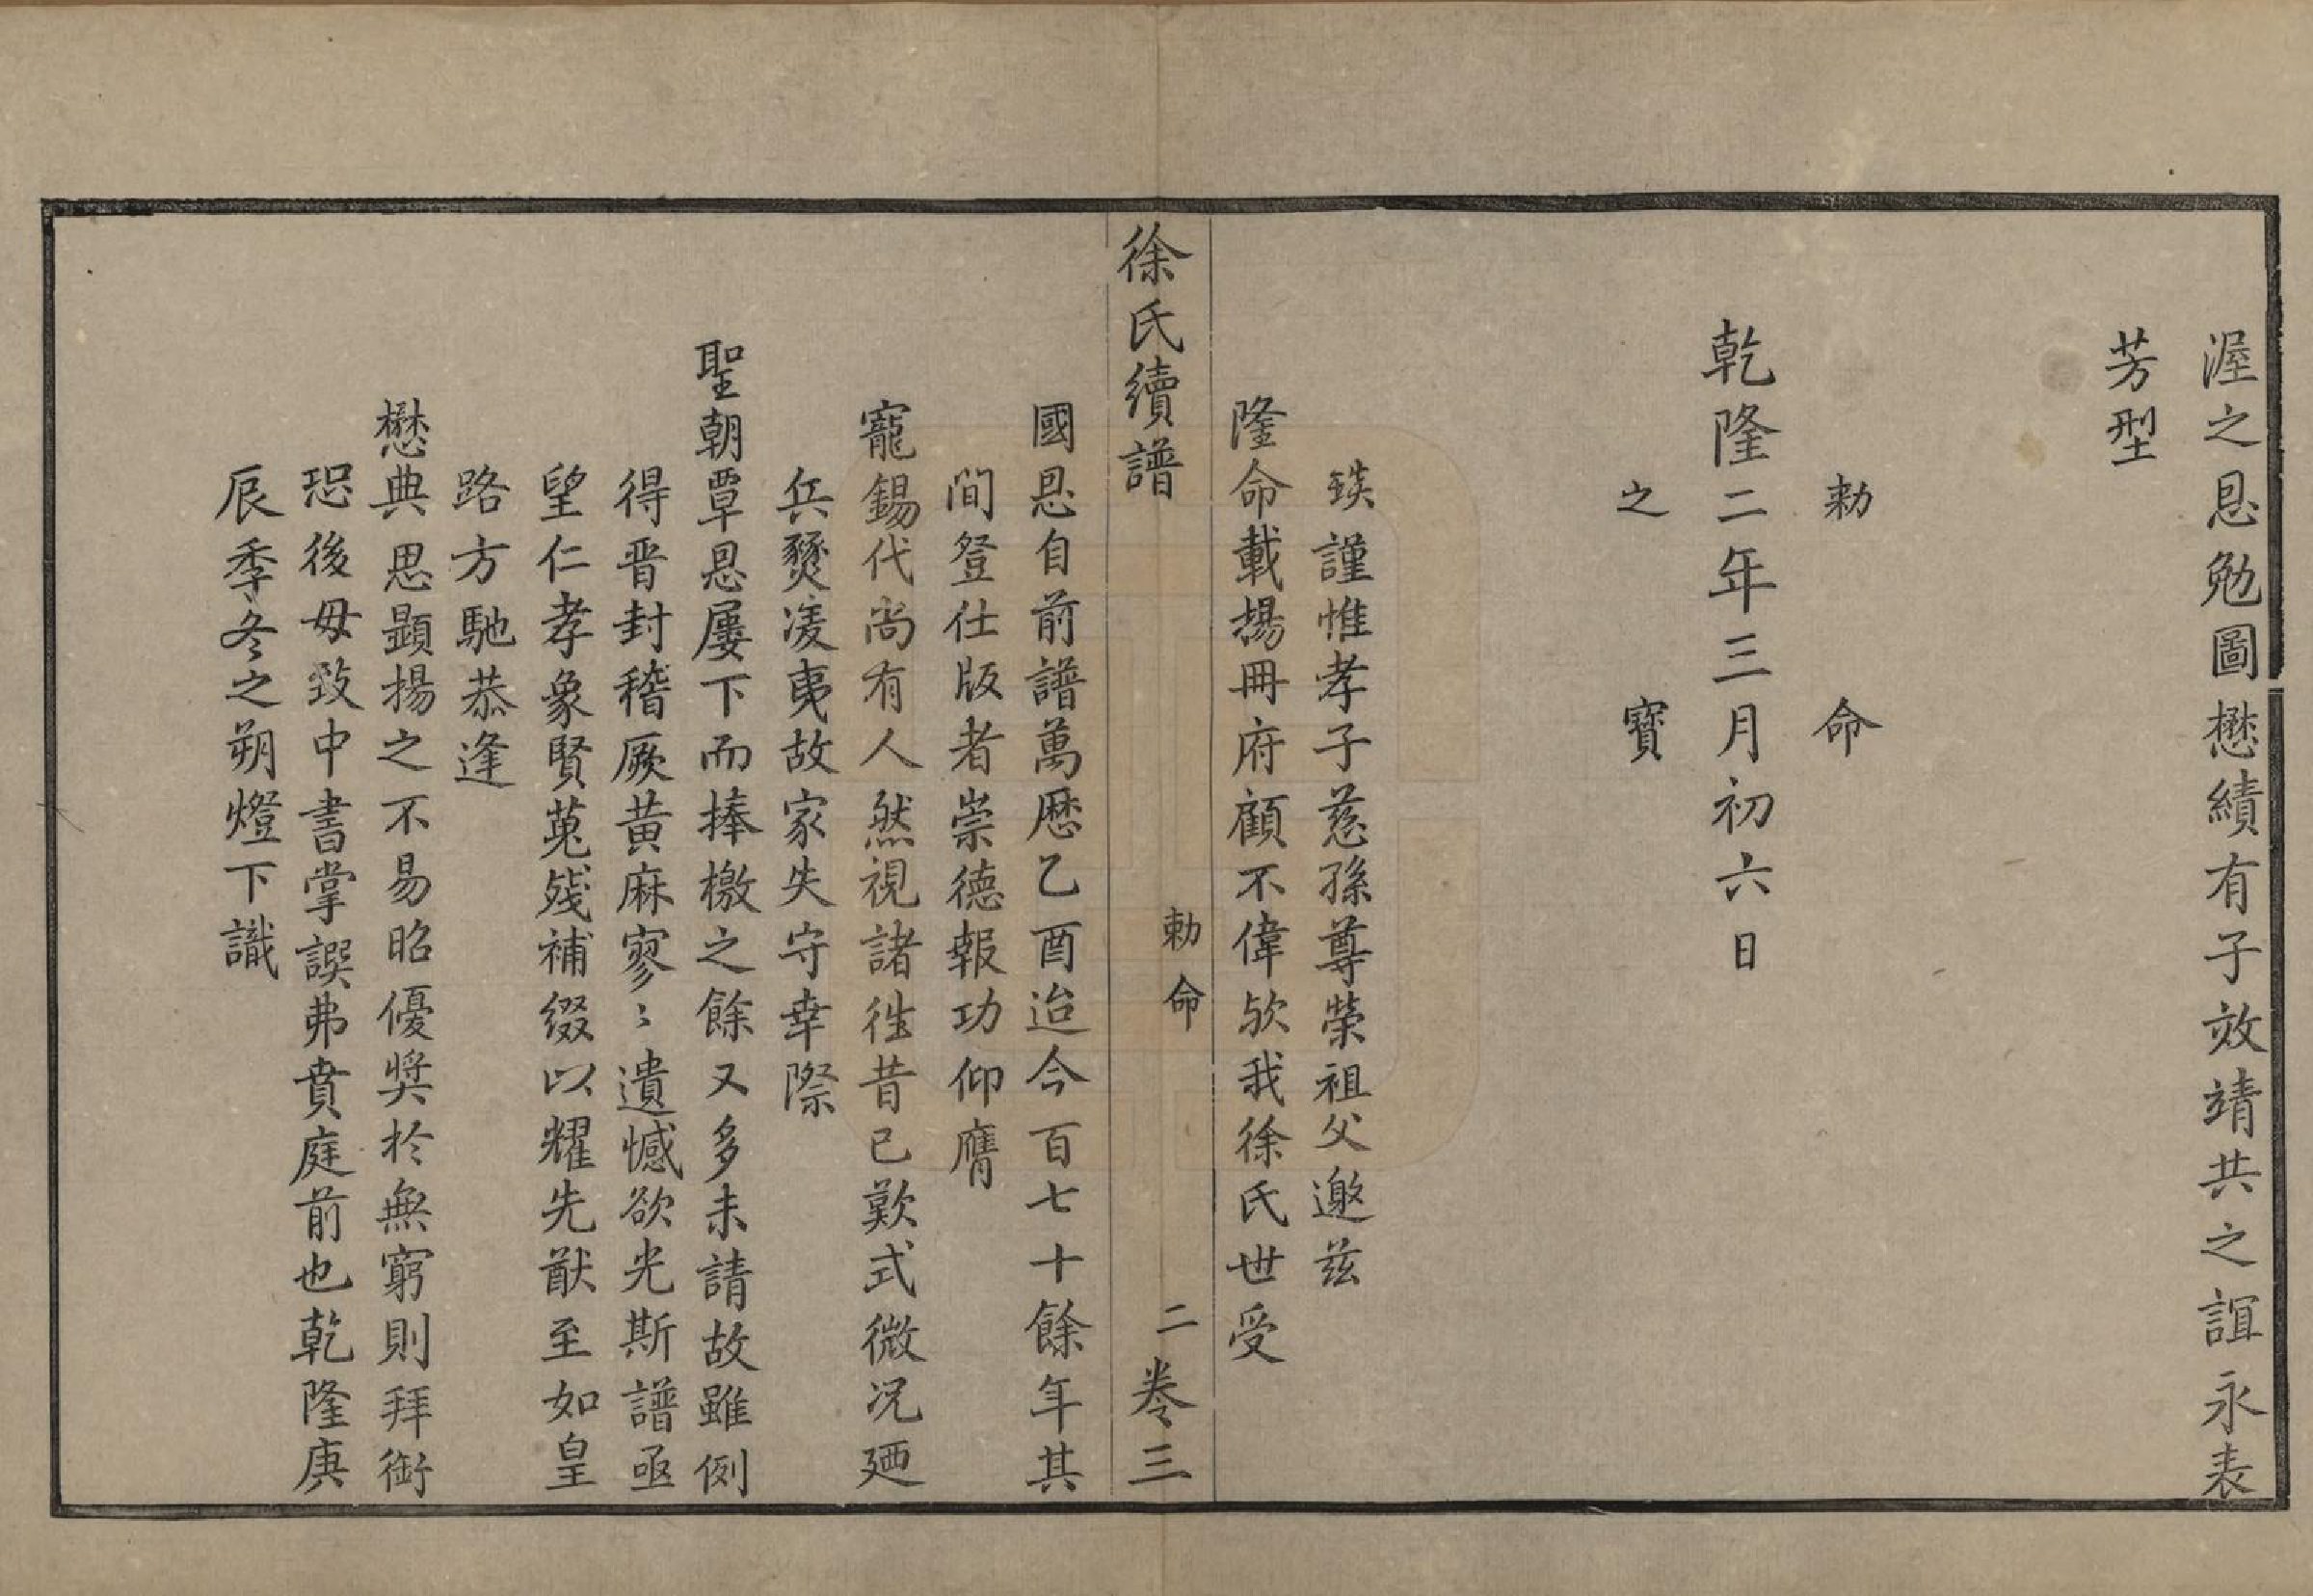 渥之恩勉圖懋績有子效靖共之誼永表
芳型
敕命
乾隆二年三月初六日
之寶
琰謹惟孝子慈孫尊榮祖父邀茲
隆命載揚冊府顧不偉歟我徐氏世受
徐氏續譜 勅命 二 卷三
國恩自前譜萬厯乙酉迨今百七十餘年其
間登仕版者崇德報功仰膺
寵錫代尚有人然視諸徃昔已歎式微况廼
兵燹凌夷故家失守幸際
聖朝覃恩屢下而捧檄之餘又多未請故雖例
得晋封稽厥黄麻寥〻遺憾欲光斯譜亟
望仁孝象賢蒐残補缀以耀先猷至如皇
路方馳恭逢
懋典思顯揚之不易昭優奬於無窮則拜銜
恩後毋致中書掌誤弗賁庭前也乾隆庚
辰季冬之朔燈下識